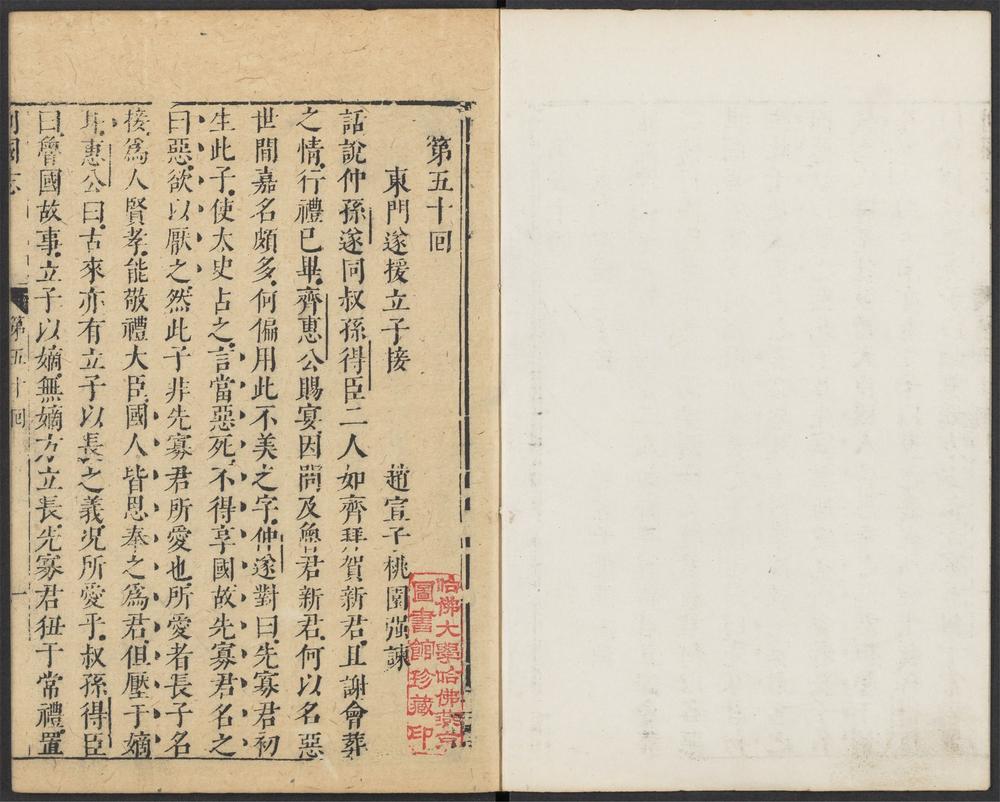 第五十囘
東門遂援立子接　趙宣子桃園强諫
話說仲孫遂同叔孫得臣二人如齊拜賀新君且謝會葬
之情行禮已畢齊惠公賜宴因問及魯君新君何以名惡
世間嘉名頗多何偏用此不美之字仲遂對曰先寡君初
生此子使太史占之言當惡死不得享國故先寡君名之
曰惡欲以厭之然此子非先寡君所愛也所愛者長子名
接爲人賢孝能敬禮大臣國人皆思奉之爲君但壓于嫡
耳惠公曰古來亦有立子以長之義况所愛乎叔孫得臣
曰魯國故事立子以嫡無嫡方立長先寡君狃于常禮置
列國志　第五十囘　一
哈佛大學哈佛燕京
圖書館珍藏印